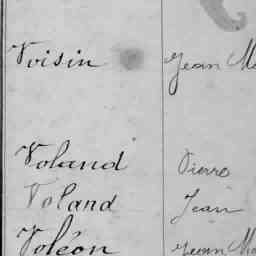 Voisin Jean Ma
Voland Pierre
Voland Jean
Voléon Jean Ma